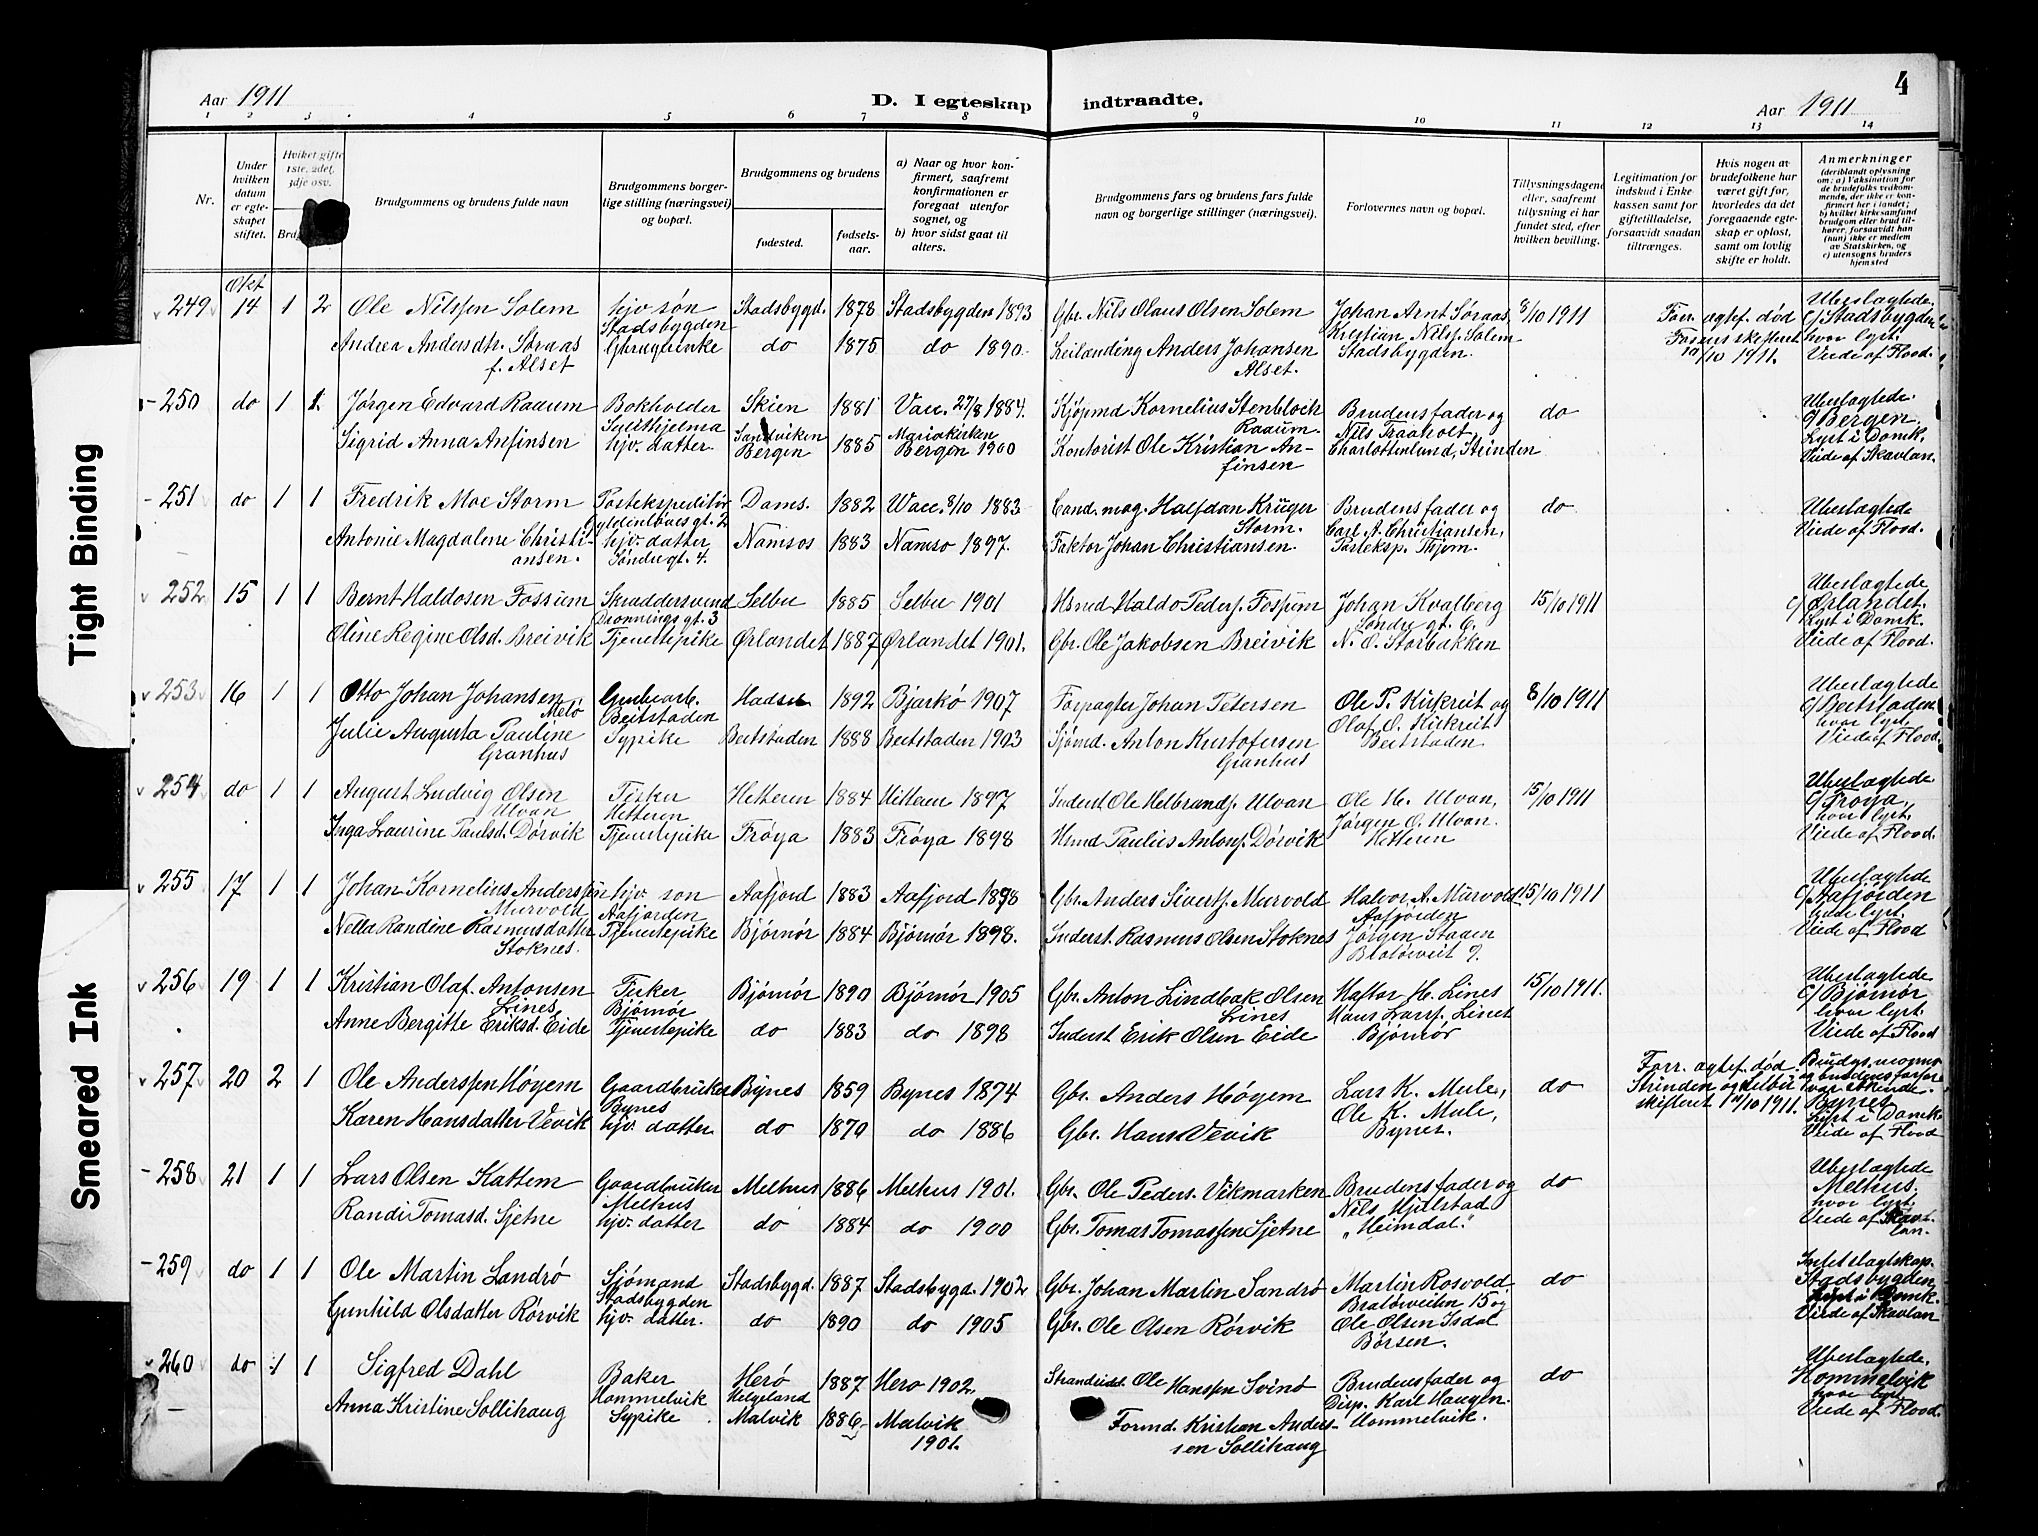 4
Aar 1911
D. I egteskap indtraadte.
Aar 1911
1 2 3 4 5 6 7 8 9 10 11 12 13 14
Nr.
Under hvilken datum er egteskapet stiftet.
Hvilket gifte 1ste, 2det, 3dje osv.
Brudgommens og brudens fulde navn
Brudgommens borgerlige stilling (næringsvei) og bopæl.
Brudgommens og brudens
fødested.
fødselsaar.
a) Naar og hvor konfirmert, saafremt konfirmationen er foregaat utenfor sognet, og
b) hvor sidst gaat til alters.
Brudgommens fars og brudens fars fulde navn og borgerlige stillinger (næringsvei).
Forlovernes navn og bopæl.
Tillysningsdagene eller, saafremt tillysning ei har fundet sted, efter hvilken bevilling.
Legitimation for indskud i Enkekassen samt for giftetilladelse, forsaavidt saadan tiltrænges.
Hvis nogen av brudefolkene har været gift før, hvorledes da det foregaaende egteskap er opløst, samt om lovlig skifte er holdt.
Anmerkninger (deriblandt oplysning om: a) Vaksination for de brudefolks vedkommende, der ikke er konfirmert her i landet; b) hvilket kirkesamfund brudgom eller brud tilhører, forsaavidt han (hun) ikke er medlem av Statskirken, og c) utensogns bruders hjemsted
Okt
249 14 1 2 Ole Nilssen Solem hjv søn Stadsbygden Stadsbygd. 1878 Stadsbygden 1893 Gbr. Nils Olaus Olsen Solem Johan Arnt Søraas, Kristian Nilss. Solem Stadsbygden. 8/10 1911 Forr. egtef. død Ubeslægtede. c/ Stadsbygden hvor lyst. Viede af Flood.
Andrea Andersdtr. Søraas f. Alset Gbrugerenke do 1875 do 1890. Leilænding Anders Johansen Alset.
250 do 1 1 Jørgen Edvard Raaum Bokholder Skien 1881 Vacc. 27/8 1884. Kjøpmd Kornelius Stenbloch Raaum. Brudens fader og Nils Traaholt, Charlottenlund, Strinden do Ubeslægtede. c/ Bergen. Lyst i Domk. Viede af Skavlan.
Sigrid Anna Anfinsen hjv. datter Sandviken Bergen 1885 Mariakirken Bergen 1900 Kontorist Ole Kristian Anfinsen
251 do 1 1 Fredrik Moe Storm Postekspeditør Gyldenløves gt. 2 Dams. 1882 Vacc. 8/10 1883 Cand. mag. Halfdan Krüger Storm. Brudens fader og Carl A. Christiansen, do Ubeslægtede Viede af Flood.
Antonie Magdalene Christiansen. hjv. datter Søndregt. 4. Namsos 1883 Namsos 1897. Faktor Johan Christiansen.
252 15 1 1 Bernt Haldosen Fossum Skraddersvend Dronningsgt. 3 Selbu 1885 Selbu 1901 Hsmd Haldo Peders. Fossum Johan Kvalberg Søndregt. 6. N. O. Storbakken 15/10 1911 Ubeslægtede c/ Ørlandet. Lyst i Domk. Viede af Flood.
Oline Regine Olsd. Breivik Tjenestepike Ørlandet 1887 Ørlandet 1901. Gbr. Ole Jakobsen Breivik
253 16 1 1 Otto Johan Johansen Melø Grubearb. Beitstaden Hadsel 1892 Bjarkø 1907 Forpagter Johan Petersen Ole P. Kirkreit og Olaf O. Kirkreit Beitstaden 8/10 1911 Ubeslægtede c/ Beitstaden hvor lyst. Viede af Flood.
Julie Augusta Pauline Granhus Sypike Beitstaden 1888 Beitstaden 1903 Sjømd. Anton Kristofersen Granhus
254 do 1 1 August Ludvig Olsen Ulvan Fisker Hitteren Hitteren 1884 Hitteren 1897 Inderst Ole Helbrands. Ulvan Ole H. Ulvan, Jørgen O. Ulvan. Hitteren 15/10 1911 Ubeslægtede c/ Frøya, hvor lyst. Viede af Flood.
Inga Laurine Paulsd. Dørvik Tjenestepike Frøya 1883 Frøya 1898 Hsmd Paulius Antons. Dørvik
255 17 1 1 Johan Kornelius Anderssen Murvold hjv. søn Aafjorden Aafjord 1883 Aafjord 1898 Gbr. Anders Siverts. Murvold Halvor A. Murvold Aafjorden Jørgen Staden 15/10 1911 Ubeslægtede c/ Aafjorden hvor lyst. Viede af Flood
Nella Randine Rasmusdatter Stoknes. Tjenestepike Bjørnør 1884 Bjørnør 1898. Inderst. Rasmus Olsen Stoknes
256 19 1 1 Kristian Olaf Antonsen Lines Fisker Bjørnør Bjørnør 1890 Bjørnør 1905 Gbr. Anton Lindbak Olsen Lines Haftor H. Lines Hans Larss. Lines Bjørnør 15/10 1911. Ubeslægtede c/ Bjørnør hvor lyst. Viede af Flood
Anne Bergitte Eriksd. Eide Tjenestepike do 1883 do 1898 Inderst Erik Olsen Eide
257 20 2 1 Ole Anderssen Høyem Gaardbruker Bynes Bynes 1859 Bynes 1874 Gbr. Anders Høyem Lars K. Mule, Ole K. Mule, Bynes. do Forr. egtef. død. Bynes Lyst i Domk. Viede af Flood
Karen Hansdatter Vevik hjv. datter do 1870 do 1886 Gbr. Hans Vevik
258 21 1 1 Lars Olsen Kattem Gaardbruker Melhus Melhus 1886 Melhus 1901. Gbr. Ole Peders. Vikmarken Brudens fader og Nils Hjelstad „Heimdal". do Ubeslægtede Melhus. hvor lyst. Viede af Skavlan.
Randi Tomasd. Sjetne hjv. datter do 1884 do 1900 Gbr. Tomas Tomassen Sjetne
259 do 1 1 Ole Martin Landrø Sjømand Stadsbygden Stadsbygd. 1887 Stadsbygd. 1902 Gbr. Johan Martin Landrø Martin Rosvold, Bratørveiten 15 og Ole Olsen Isdal Børsen. do Intet slægtskap. Stadsbygden, Lyst i Domk. Viede af Skavlan
Gunhild Olsdatter Rørvik hjv. datter. do 1890 do 1905 Gbr. Ole Olsen Rørvik
260 do 1 1 Sigfred Dahl Baker Hommelvik Herø Helgeland 1887 Herø 1902. Strandsidd. Ole Hanssen Svinø Brudens fader og Disp. Karl Haugen. Hommelvik. do Ubeslægtede. Hommelvik hvor lyst. Viede af Flood.
Anna Kristine Sollihaug Sypike Malvik 1886 Malvik 1901. Formd. Kristian Anderssen Sollihaug
Tight Binding
Smeared Ink